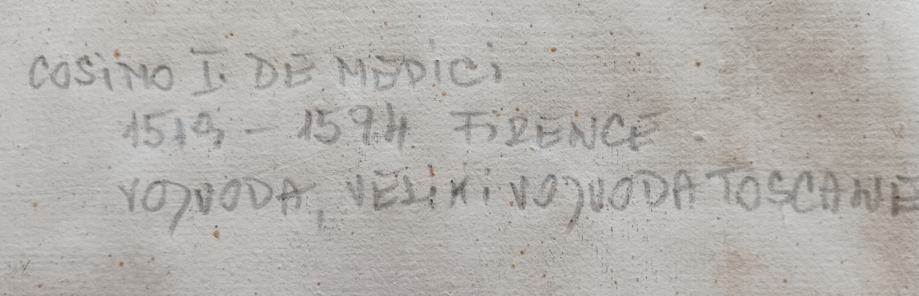 COSiMO I. DE MEDiCi
1519 - 1594 FiRENCE
VOJVODA, VELiKi VOJVODA TOSCANE